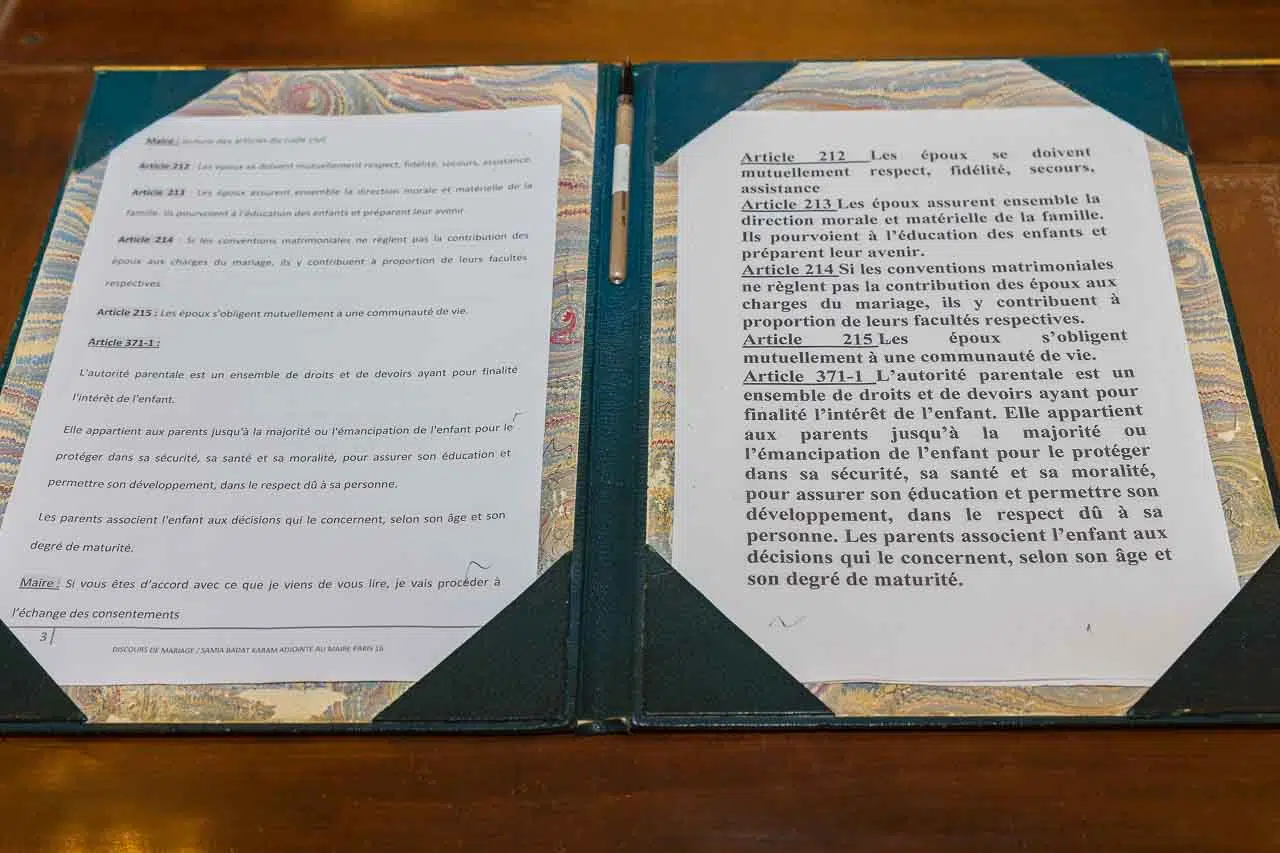 Maire : lecture des articles du code civil
Article 212 : Les époux se doivent mutuellement respect, fidélité, secours, assistance.
Article 213 : Les époux assurent ensemble la direction morale et matérielle de la
famille. Ils pourvoient à l'éducation des enfants et préparent leur avenir.
Article 214 : Si les conventions matrimoniales ne règlent pas la contribution des
époux aux charges du mariage, ils y contribuent à proportion de leurs facultés
respectives.
Article 215 : Les époux s'obligent mutuellement à une communauté de vie.
Article 371-1 :
L'autorité parentale est un ensemble de droits et de devoirs ayant pour finalité
l'intérêt de l'enfant.
Elle appartient aux parents jusqu'à la majorité ou l'émancipation de l'enfant pour le
protéger dans sa sécurité, sa santé et sa moralité, pour assurer son éducation et
permettre son développement, dans le respect dû à sa personne.
Les parents associent l'enfant aux décisions qui le concernent, selon son âge et son
degré de maturité.
Maire : Si vous êtes d'accord avec ce que je viens de vous lire, je vais procéder à
l'échange des consentements
3 |
DISCOURS DE MARIAGE / SAMIA BADAT KARAM ADJOINTE AU MAIRE PARIS 16
Article 212 Les époux se doivent
mutuellement respect, fidélité, secours,
assistance
Article 213 Les époux assurent ensemble la
direction morale et matérielle de la famille.
Ils pourvoient à l'éducation des enfants et
préparent leur avenir.
Article 214 Si les conventions matrimoniales
ne règlent pas la contribution des époux aux
charges du mariage, ils y contribuent à
proportion de leurs facultés respectives.
Article 215 Les époux s'obligent
mutuellement à une communauté de vie.
Article 371-1 L'autorité parentale est un
ensemble de droits et de devoirs ayant pour
finalité l'intérêt de l'enfant. Elle appartient
aux parents jusqu'à la majorité ou
l'émancipation de l'enfant pour le protéger
dans sa sécurité, sa santé et sa moralité,
pour assurer son éducation et permettre son
développement, dans le respect dû à sa
personne. Les parents associent l'enfant aux
décisions qui le concernent, selon son âge et
son degré de maturité.